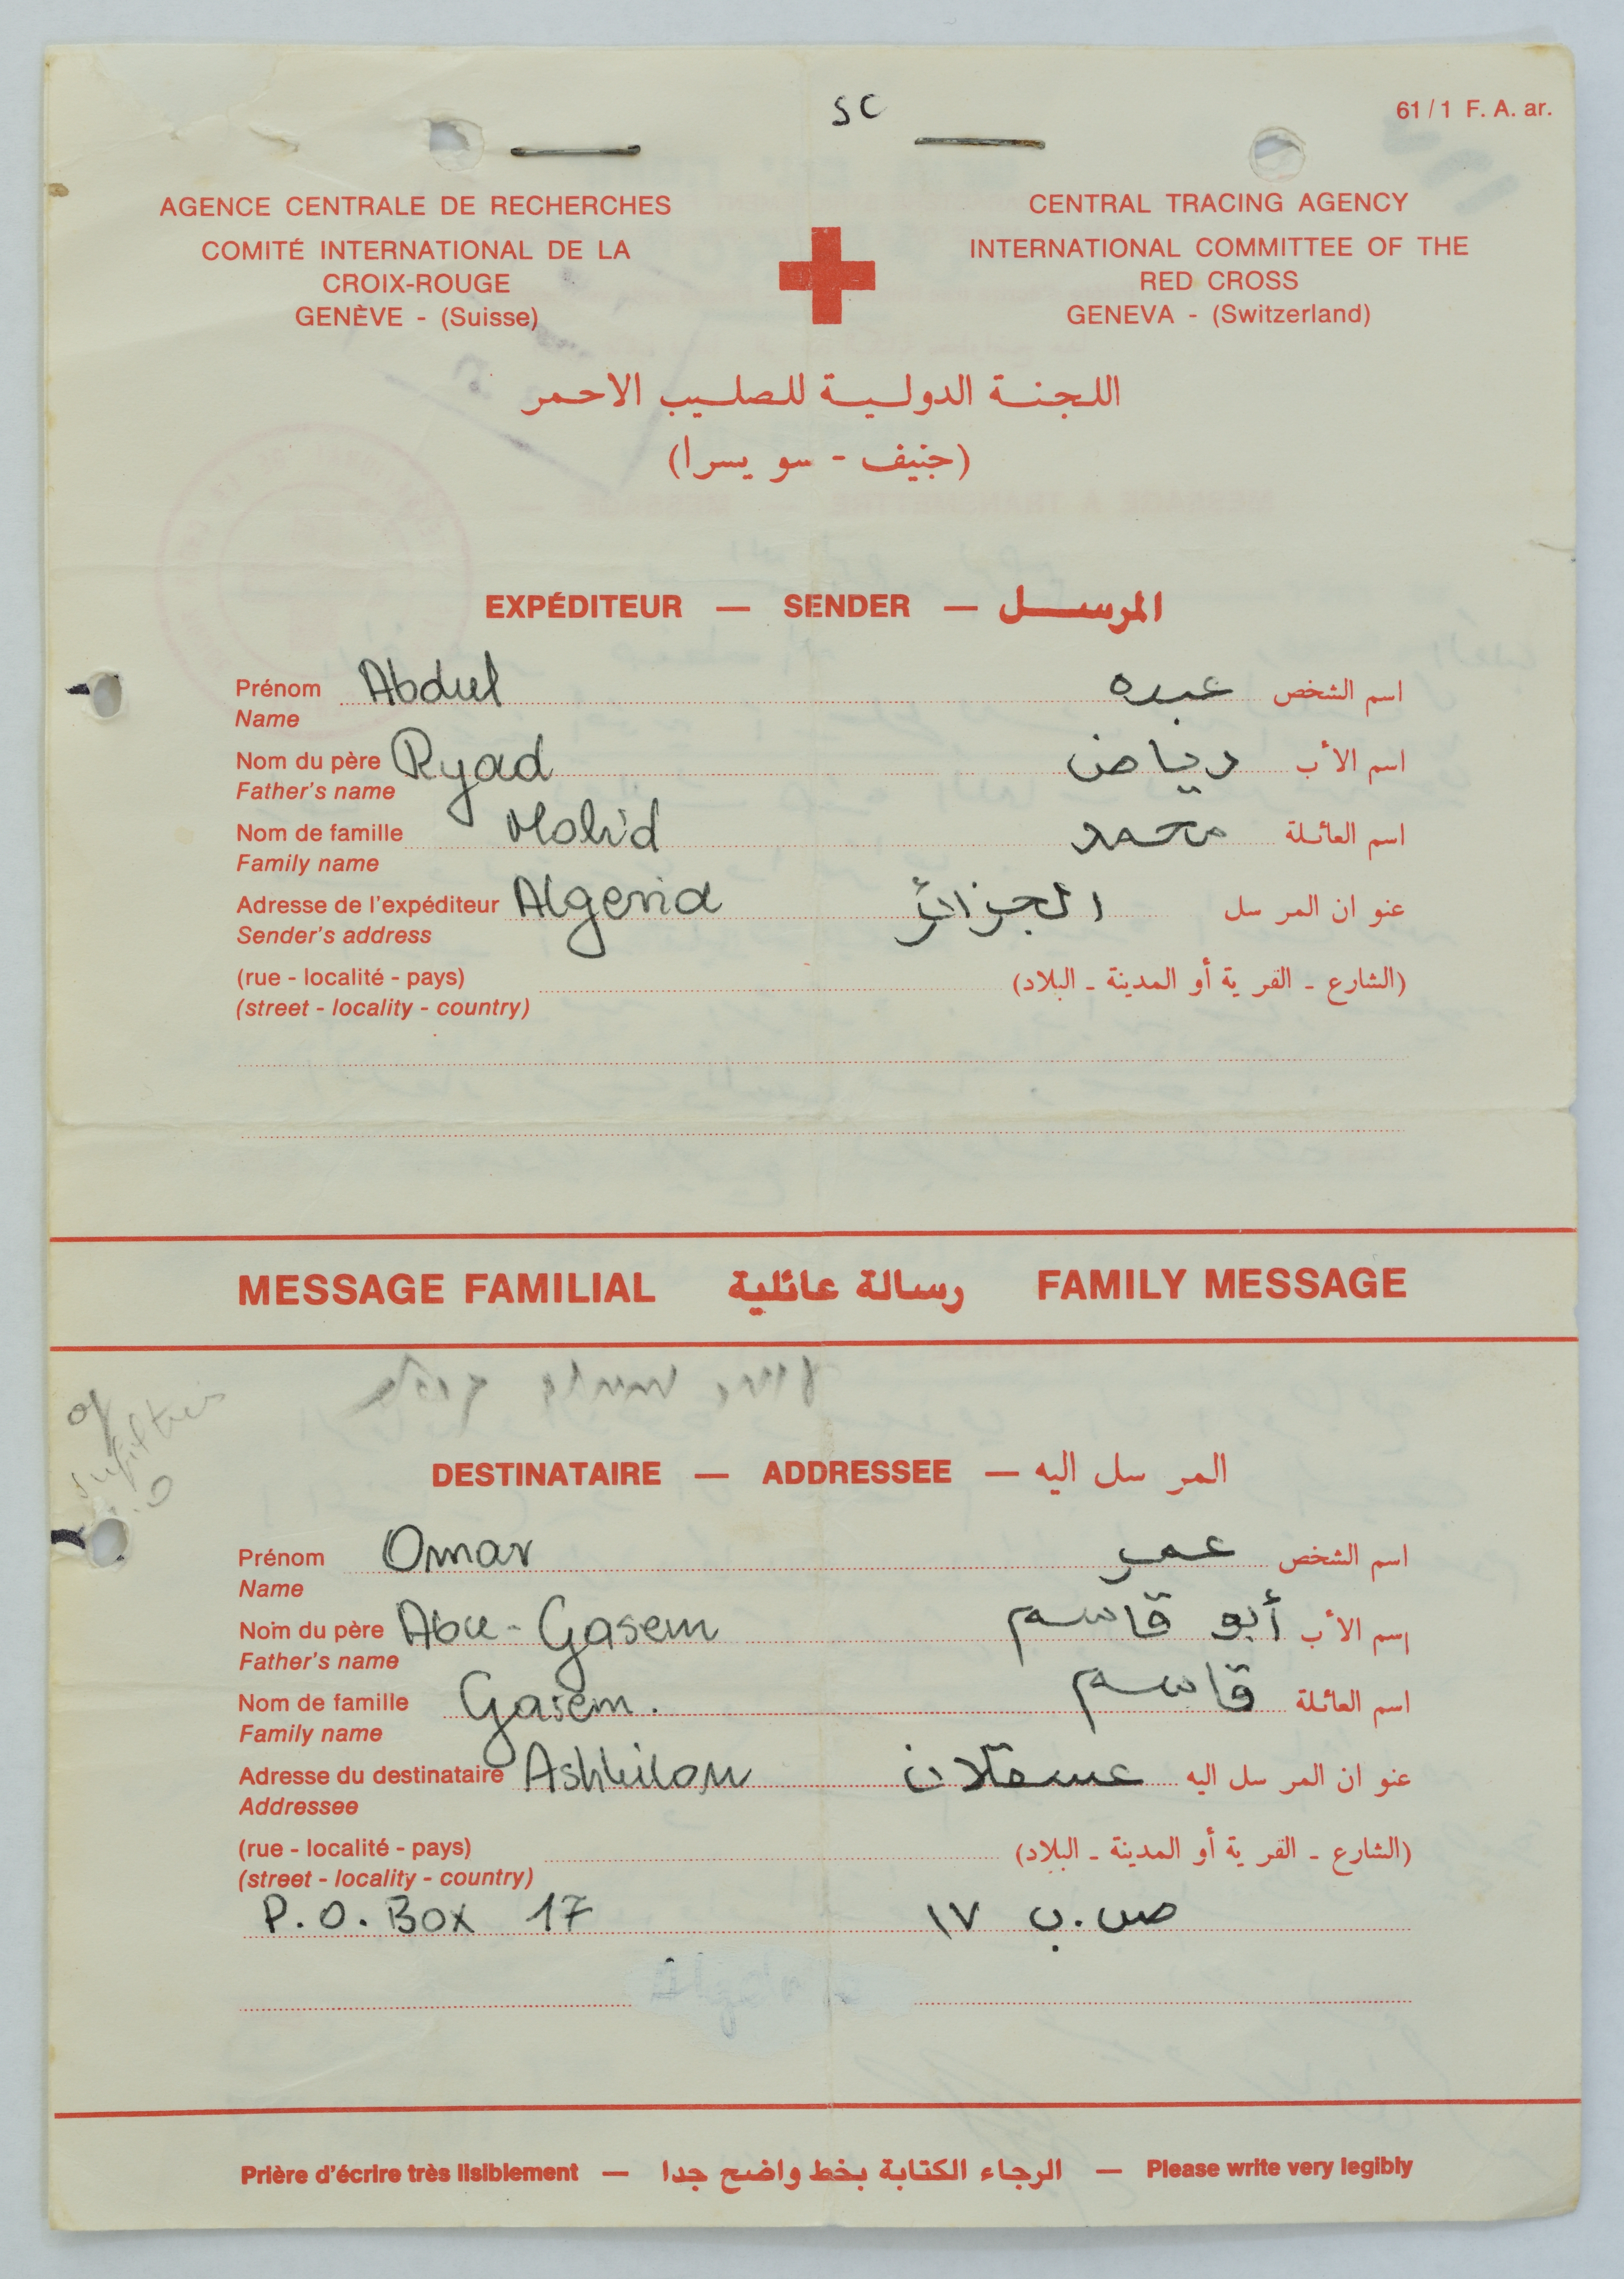 SC
61/1 F. A. ar.
AGENCE CENTRALE DE RECHERCHES
COMITÉ INTERNATIONAL DE LA
CROIX-ROUGE
GENÈVE - (Suisse)
CENTRAL TRACING AGENCY
INTERNATIONAL COMMITTEE OF THE
RED CROSS
GENEVA - (Switzerland)
اللجنة الدولية للصليب الاحمر
(جنيف - سويسرا)
EXPÉDITEUR — SENDER — المرسل
Prénom Abdul عبده اسم الشخص
Name
Nom du père Ryad رياض اسم الأب
Father's name
Nom de famille Mohd محمد اسم العائلة
Family name
Adresse de l'expéditeur Algeria الجزائر عنوان المرسل
Sender's address
(rue - localité - pays) (الشارع - القرية أو المدينة - البلاد)
(street - locality - country)
MESSAGE FAMILIAL رسالة عائلية FAMILY MESSAGE
DESTINATAIRE — ADDRESSEE — المرسل اليه
Prénom Omar عمر اسم الشخص
Name
Nom du père Abu-Gasem أبو قاسم إسم الأب
Father's name
Nom de famille Gasem. قاسم اسم العائلة
Family name
Adresse du destinataire Ashkilon عسقلان عنوان المرسل اليه
Addressee
(rue - localité - pays) (الشارع - القرية أو المدينة - البلاد)
(street - locality - country)
P.O. Box 17 ص.ب ١٧
Prière d'écrire très lisiblement — الرجاء الكتابة بخط واضح جدا — Please write very legibly